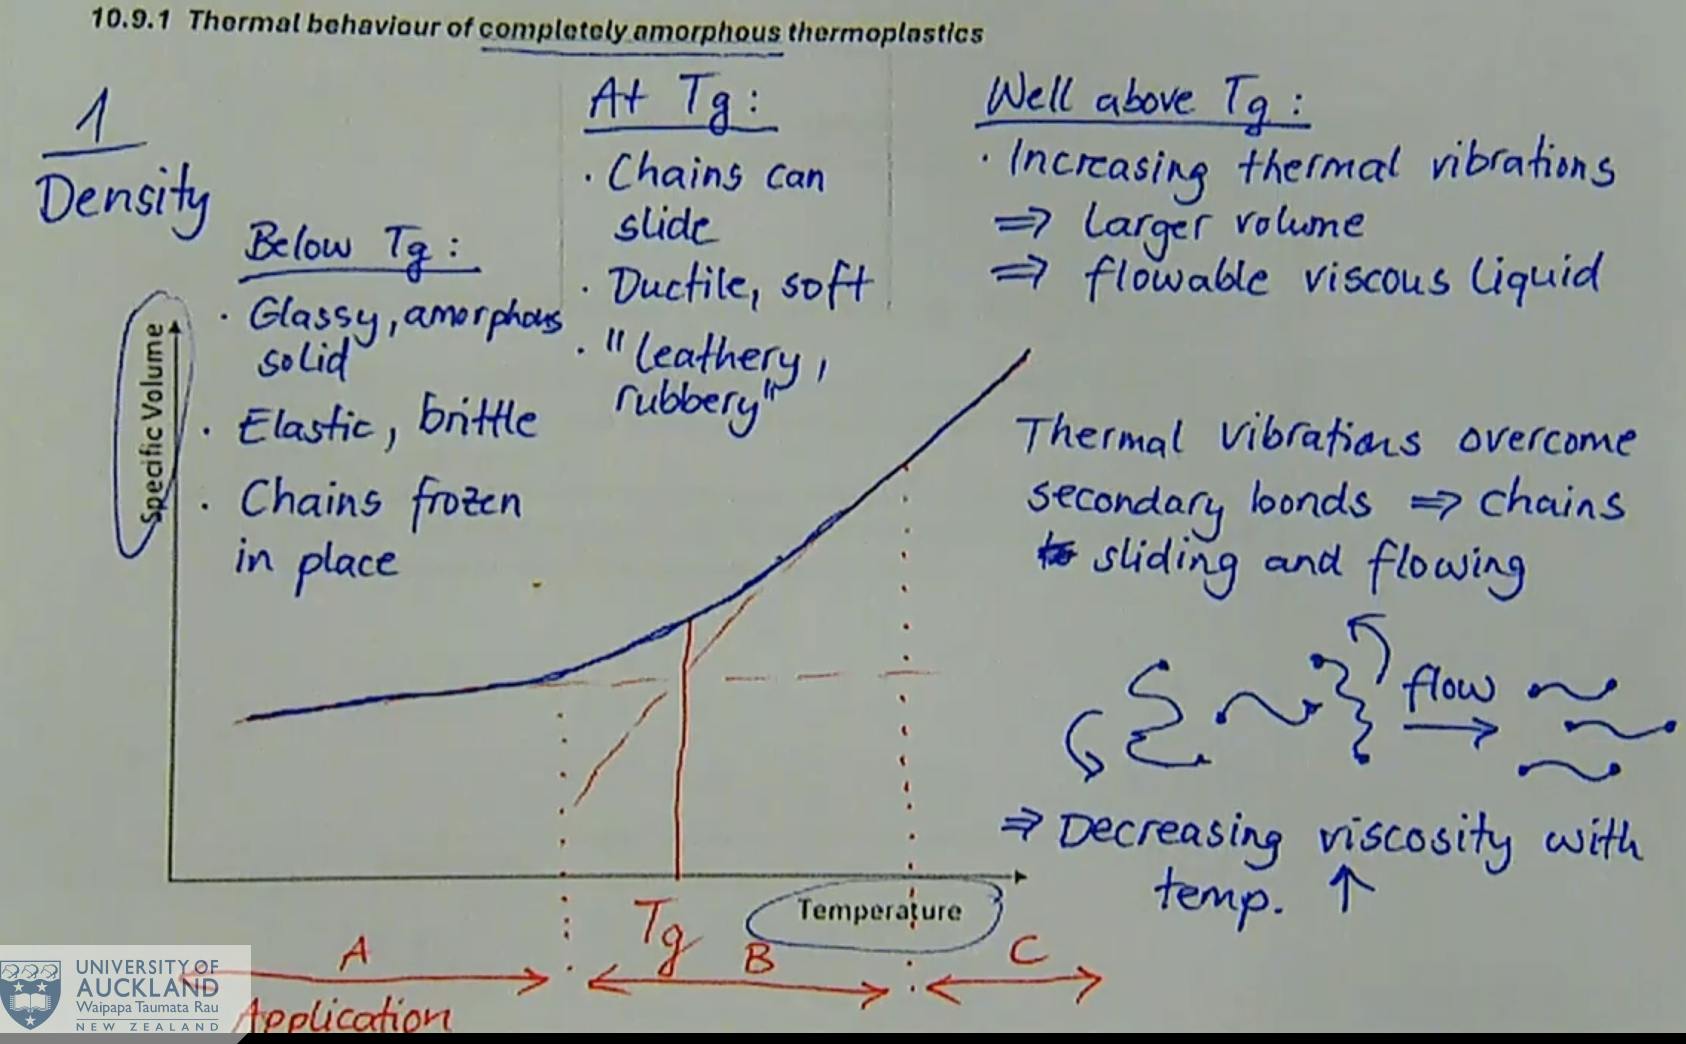 10.9.1 Thermal behaviour of completely amorphous thermoplastics
1
Density
Below Tg:
· Glassy, amorphous
solid
· Elastic, brittle
· Chains frozen
in place
At Tg:
· Chains can
slide
· Ductile, soft
· "leathery,
rubbery"
Well above Tg:
· Increasing thermal vibrations
⇒ Larger volume
⇒ flowable viscous liquid
Thermal vibrations overcome
secondary bonds ⇒ chains
sliding and flowing
flow
⇒ Decreasing viscosity with
temp. ↑
Specific Volume
Temperature
Tg
A
B
C
Application
UNIVERSITY OF
AUCKLAND
Waipapa Taumata Rau
NEW ZEALAND